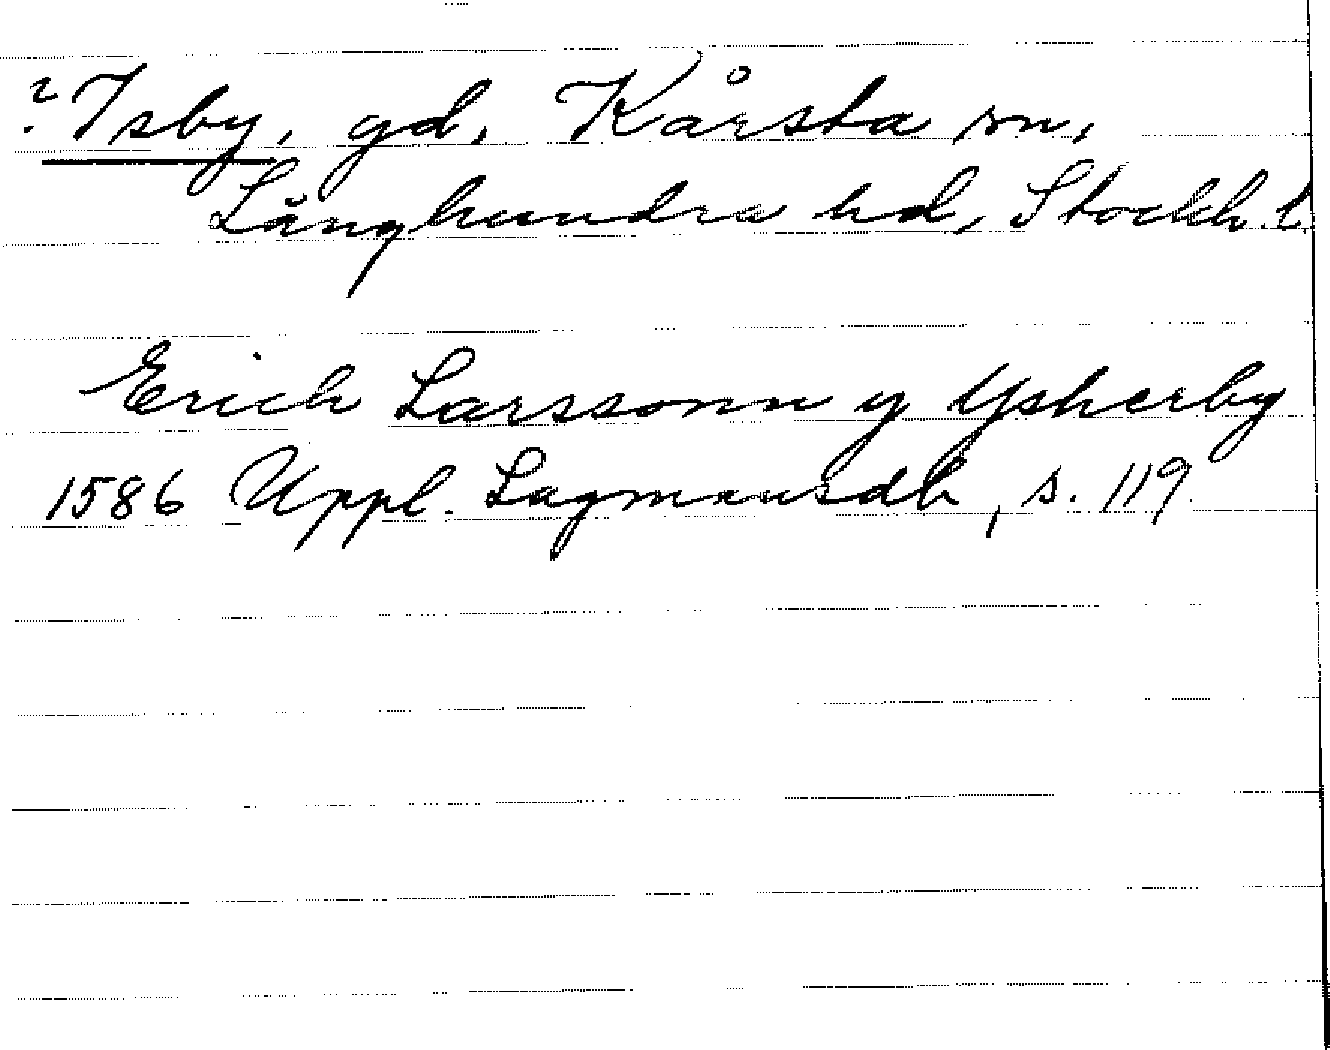 ? Isby, gd, Kårsta sn,
Långhundra hd, Stockh. l.
Erich Larssonn y Ysherby
1586 Uppl. Lagmansdb, s. 119.